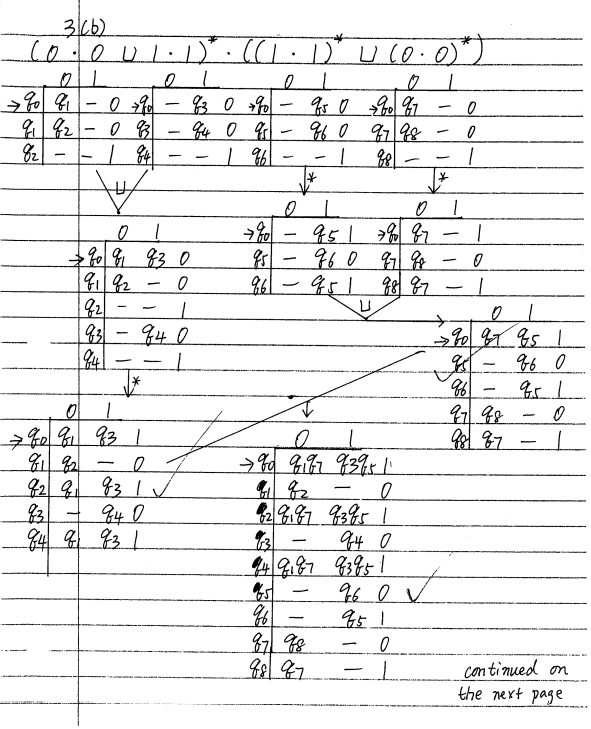 3(b)
(0·0 ∪ 1·1)* · ((1·1)* ∪ (0·0)*)
0 1
→q0 q1 - 0
q1 q2 - 0
q2 - - 1
0 1
→q0 - q3 0
q3 - q4 0
q4 - - 1
0 1
→q0 - q5 0
q5 - q6 0
q6 - - 1
0 1
→q0 q7 - 0
q7 q8 - 0
q8 - - 1
∪
*
*
0 1
→q0 q1 q3 0
q1 q2 - 0
q2 - - 1
q3 - q4 0
q4 - - 1
0 1
→q0 - q5 1
q5 - q6 0
q6 - q5 1
0 1
→q0 q7 - 1
q7 q8 - 0
q8 q7 - 1
∪
0 1
→q0 q7 q5 1
q5 - q6 0
q6 - q5 1
q7 q8 - 0
q8 q7 - 1
*
0 1
→q0 q1 q3 1
q1 q2 - 0
q2 q1 q3 1
q3 - q4 0
q4 q1 q3 1
0 1
→q0 q1q7 q3q5 1
q1 q2 - 0
q2 q1q7 q3q5 1
q3 - q4 0
q4 q1q7 q3q5 1
q5 - q6 0
q6 - q5 1
q7 q8 - 0
q8 q7 - 1
continued on
the next page